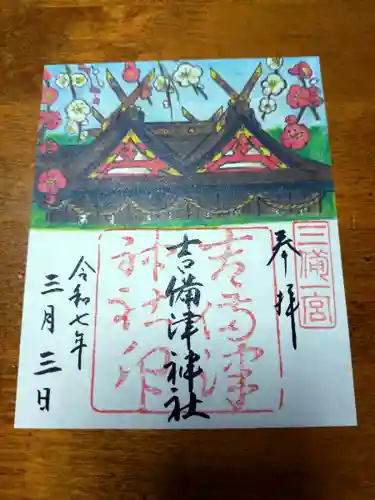 三備一宮
奉拝
吉備津神社
吉備津
神社印
令和七年
三月三日